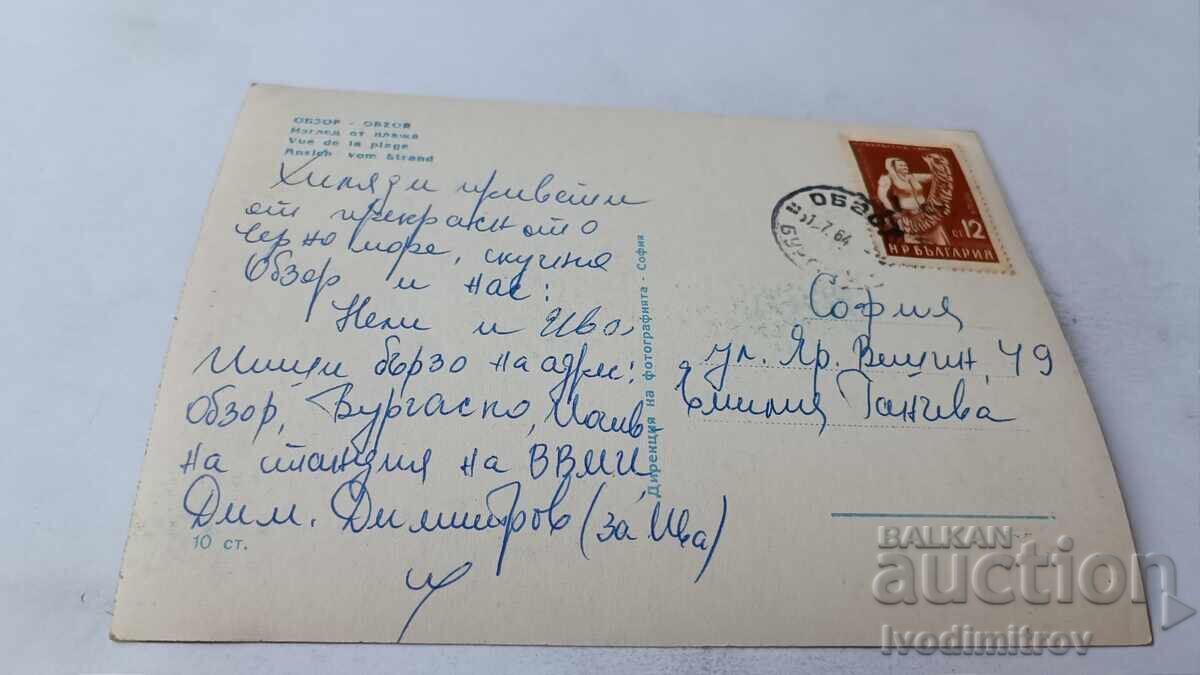 ОБЗОР - OBZOR
Изглед от плажа
Vue de la plage
Ansich vom Strand
Хиляди привети
от прекрасното
Черно море, скучния
Обзор и нас:
Нели и Иво,
Пиши бързо на адрес:
Обзор, Бургаско,
на станция на ВВМИ,
Дим. Димитров (за Ива)
10 ст.
Дирекция на фотографията - София
ОБЗОР
7.64
12
СТ
НР БЪЛГАРИЯ
София
ул. Яр. Вешин, 49
Емилия Ганчева
BALKAN
auction
Ivodimitrov